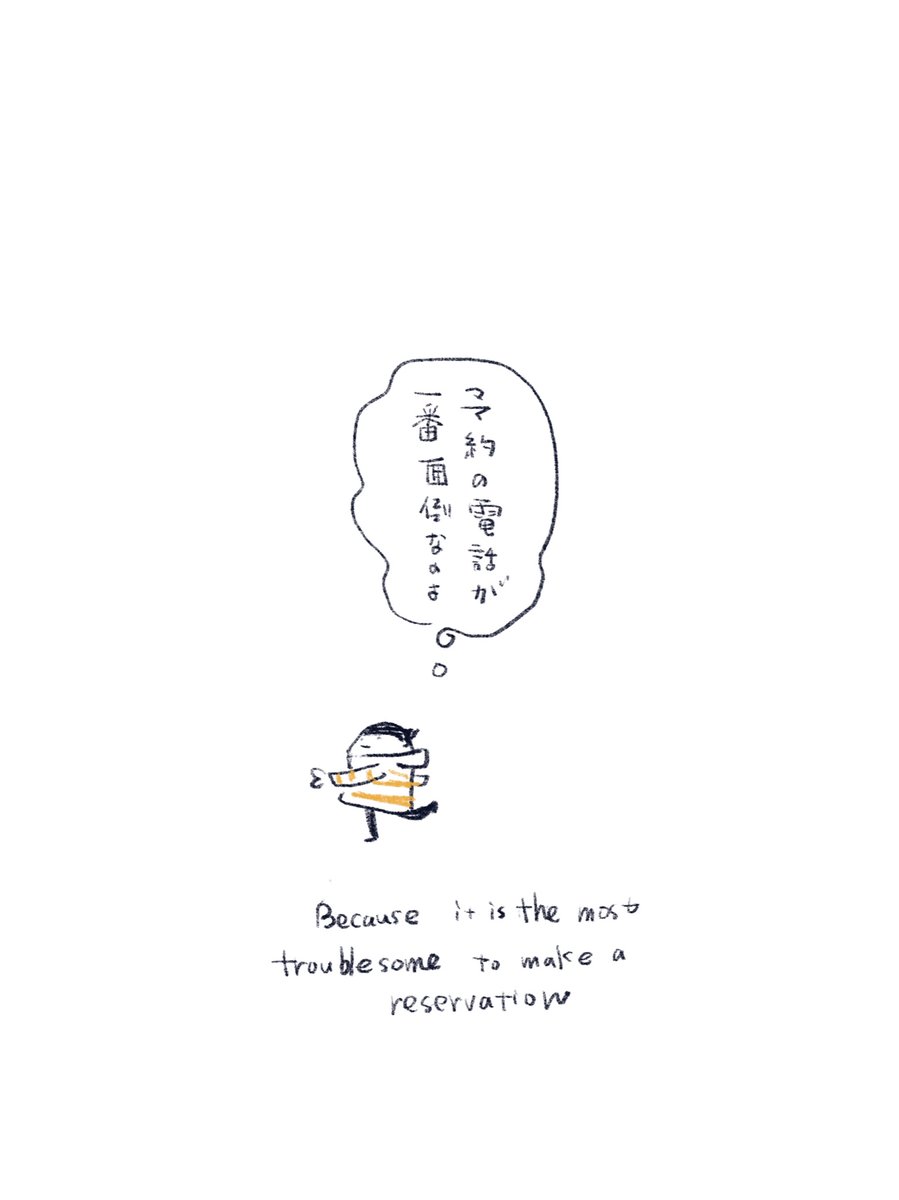 予約の電話が
一番面倒なのよ
Because it is the most
troublesome to make a
reservation